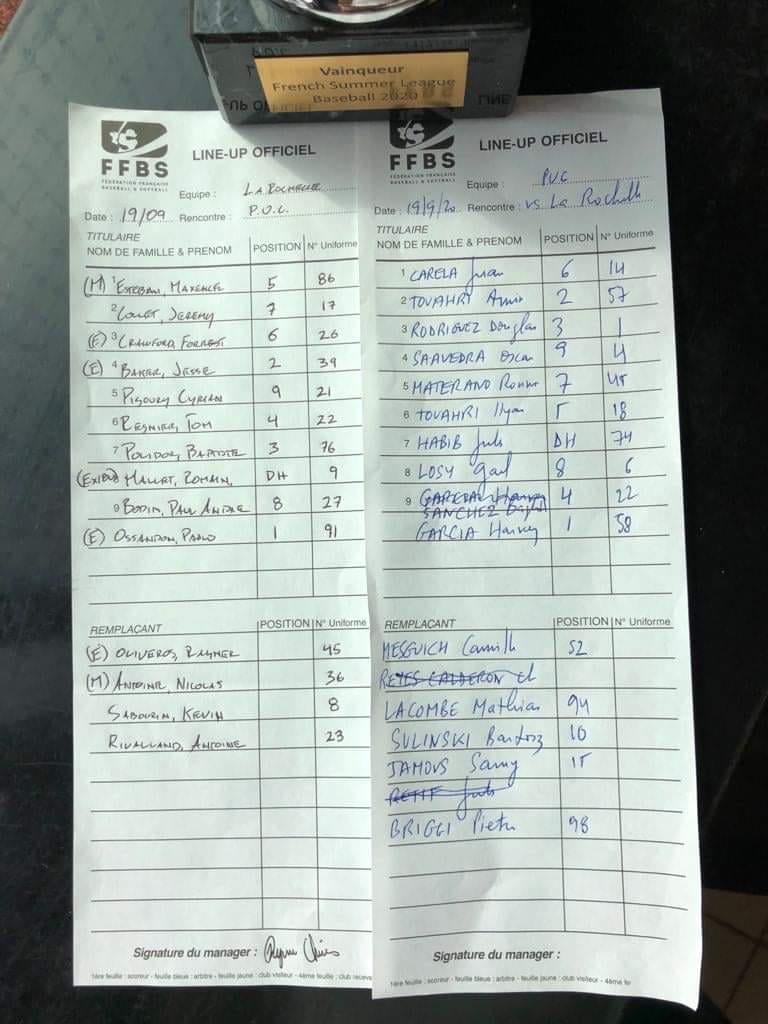 Vainqueur
French Summer League
Baseball 2020
FFBS
FÉDÉRATION FRANÇAISE
BASEBALL & SOFTBALL
LINE-UP OFFICIEL
Equipe : LA ROCHELLE
Date : 19/09 Rencontre : P.U.C.
TITULAIRE
NOM DE FAMILLE & PRENOM POSITION N° Uniforme
(M) 1 ESTEBAN, MAXENCE 5 86
2 COUET, JEREMY 7 17
(E) 3 CRAWFORD, FORREST 6 26
(E) 4 BAKER, JESSE 2 39
5 PIGOURY CYRIAN 9 21
6 RESNIER, TOM 4 22
7 POLIDOR, BAPTISTE 3 76
MALLET, ROMAIN, DH 9
9 BODIN, PAUL ANDRE 8 27
(E) OSSANDON, PABLO 1 91
REMPLAÇANT POSITION N° Uniforme
(E) OLIVEROS, RAYNER 45
(M) ANTOINE, NICOLAS 36
SABOURIN, KEVIN 8
RIVALLAND, ANTOINE 23
Signature du manager :
1ère feuille : scoreur - feuille bleue : arbitre - feuille jaune : club visiteur - 4ème feuille : club receve
FFBS
FÉDÉRATION FRANÇAISE
BASEBALL & SOFTBALL
LINE-UP OFFICIEL
Equipe : PUC
Date : 19/9/20 Rencontre : vs La Rochelle
TITULAIRE
NOM DE FAMILLE & PRENOM POSITION N° Uniforme
1 CARELA Juan 6 14
2 TOUAHRI Amin 2 57
3 RODRIGUEZ Douglas 3 1
4 SAAVEDRA Oscar 9 4
5 MATERANO Ronnie 7 45
6 TOUAHRI Ilyan 5 18
7 HABIB Jules DH 74
8 LOSY Gael 8 6
9 GARCIA Harvey 4 22
SANCHEZ
GARCIA Harvey 1 58
REMPLAÇANT POSITION N° Uniforme
MESGUICH Camille 52
REYES CALDERON El
LACOMBE Mathias 94
SULINSKI Bartosz 10
JAMOUS Samy 15
RETIF Jules
BRIGGI Pietro 98
Signature du manager :
1ère feuille : scoreur - feuille bleue : arbitre - feuille jaune : club visiteur - 4ème fe